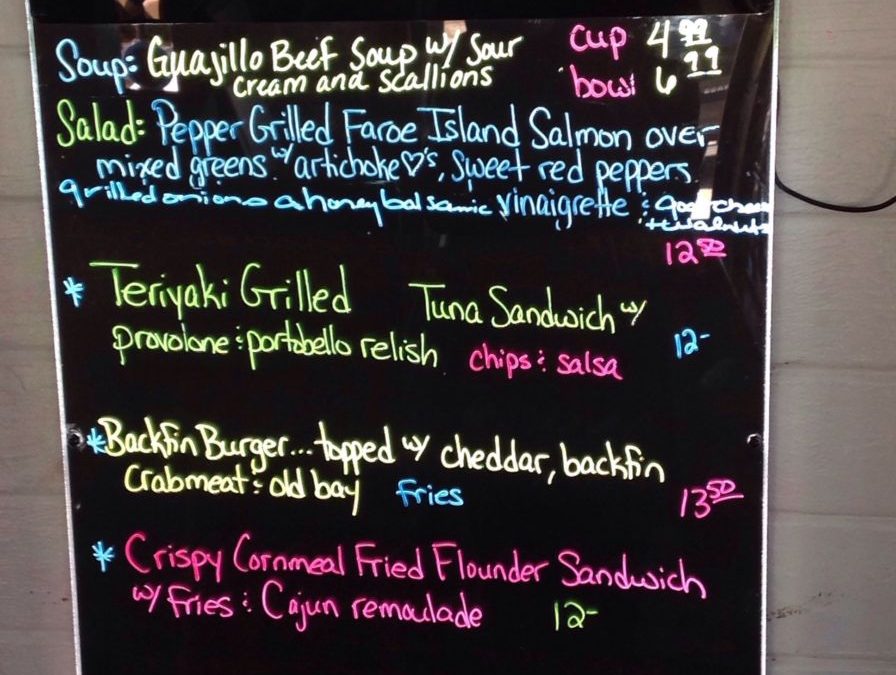 Soup: Guajillo Beef Soup w/ Sour cup 4 99
Cream and Scallions bowl 6 99
Salad: Pepper Grilled Faroe Island Salmon over
mixed greens w/ artichoke ♡'s, sweet red peppers
grilled onions a honey balsamic vinaigrette : goat cheese
+ walnuts
12 50
* Teriyaki Grilled Tuna Sandwich w/
provolone : portobello relish chips : salsa 12-
* Backfin Burger... topped w/ cheddar, backfin
Crabmeat : old bay fries 13 50
* Crispy Cornmeal Fried Flounder Sandwich
w/ Fries : Cajun remoulade 12-